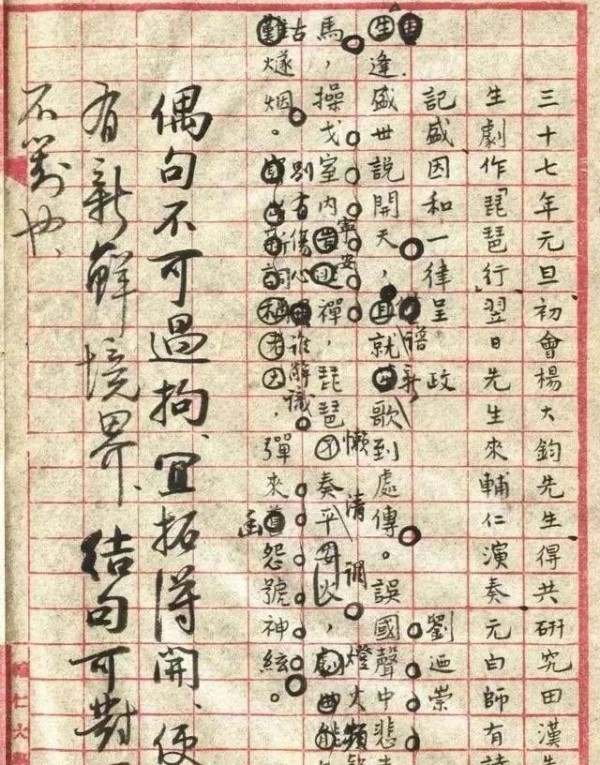 三十七年元旦初會楊大鈞先生得共研究田漢先
生劇作『琵琶行』翌日先生來輔仁演奏元白師有詩
記盛因和一律呈 政 劉迺崇
生逢盛世說開天,就歌到處傳。誤國聲中悲
諳新
馬,操戈室內禪,琵琶不奏平安火,劇曲能
寧安
懶清調 燈火頻
難古燧烟。新詞,彈來怨號神絃。
別有傷心誰解識
偶句不可過拘、宜拓得開、便
有新鮮境界、結句可對
不對也、